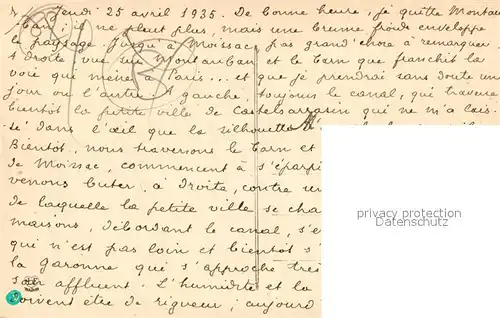 Jeudi 25 avril 1935. De bonne heure, je quitte Montau
ban; il ne pleut plus, mais une brume froide enveloppe
le paysage. Jusqu'à Moissac, pas grand'chose à remarquer
à droite vue sur Montauban et le Tarn que franchit la
voie qui mène à Paris... et que je prendrai sans doute un
jour ou l'autre. A gauche, toujours le canal, qui traverse
bientôt la petite ville de Castelsarrasin qui ne m'a lais-
sé dans l'œil que la silhouette
Bientôt, nous traversons le Tarn et
de Moissac, commencent à s'éparpi
venons buter, à droite, contre un
de laquelle la petite ville se cha
maisons, débordant le canal, s'e
qui n'est pas loin et bientôt s'
la Garonne que s'approche très
son affluent. L'humidité et la
doivent être de rigueur; aujourd
privacy protection
Datenschutz